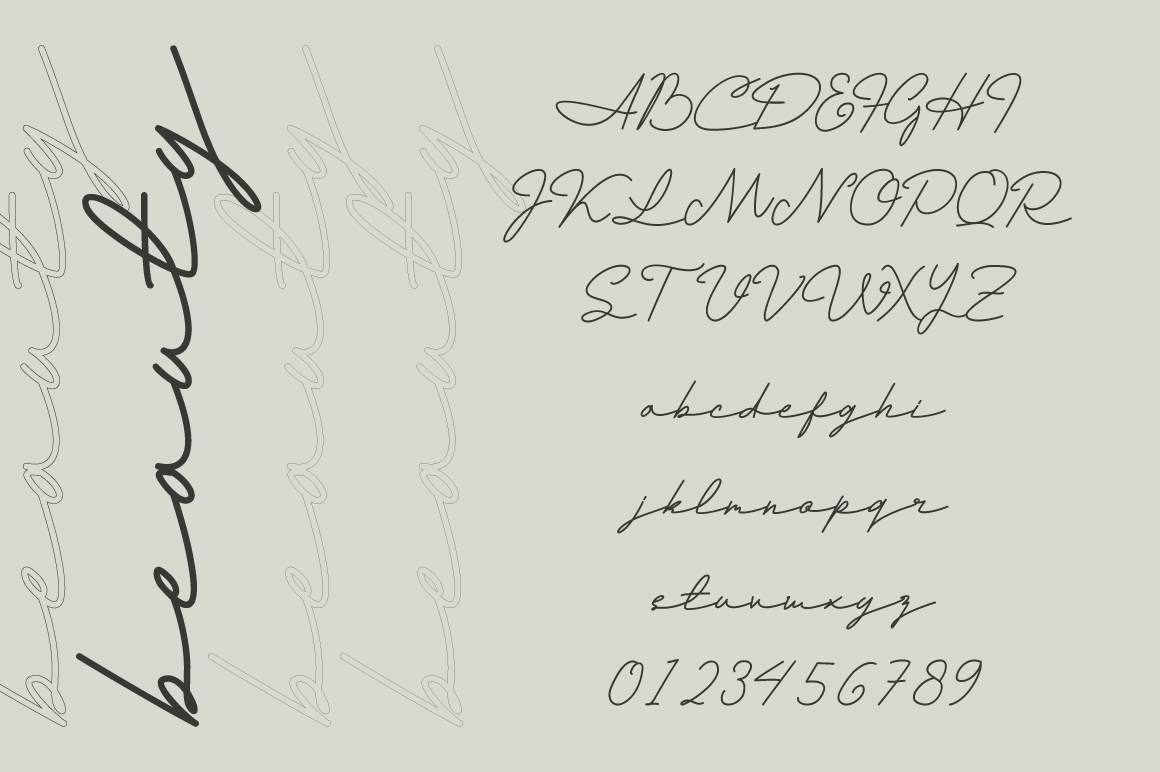 beauty
beauty
beauty
beauty
ABCDEFGHI
JKLMNOPQR
STUVWXYZ
abcdefghi
jklmnopqr
stuvwxyz
0123456789